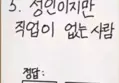 3. 성인이지만
직업이 없는사람
정답: